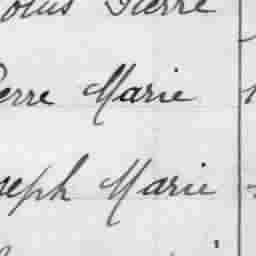 Pierre
erre Marie
seph Marie